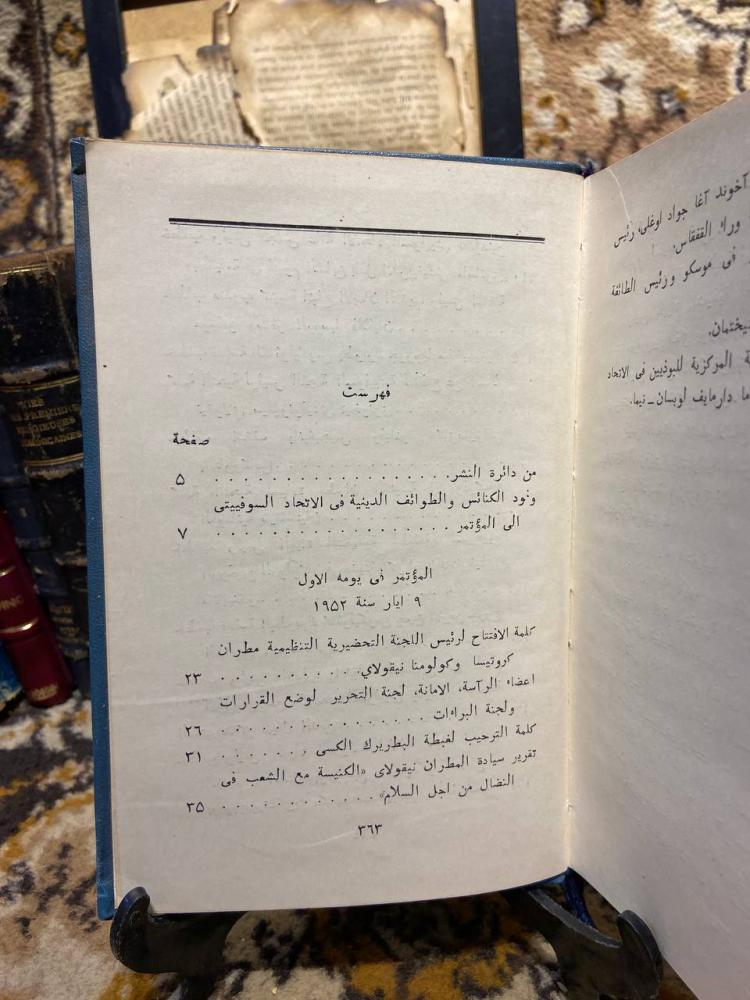 فهرست
صفحة
من دائرة النشر. . . . . . . . . . . . . . . . . . ٥
وفود الكنائس والطوائف الدينية فى الاتحاد السوفييتى
الى المؤتمر . . . . . . . . . . . . . . . . . . ٧
المؤتمر فى يومه الاول
٩ ايار سنة ١٩٥٢
كلمة الافتتاح لرئيس اللجنة التحضيرية التنظيمية مطران
كروتيسا وكولومنا نيقولاي. . . . . . . . . . . ٢٣
اعضاء الرآسة، الامانة، لجنة التحرير لوضع القرارات
ولجنة البراءات . . . . . . . . . . . . . . . . ٢٦
كلمة الترحيب لغبطة البطريرك الكسى . . . . . . . ٣١
تقرير سيادة المطران نيقولاى «الكنيسة مع الشعب فى
النضال من اجل السلام» . . . . . . . . . . . . ٣٥
٣٦٣
آخوند آغا جواد اوغلى، رئيس
وراء القفقاس.
فى موسكو ورئيس الطائفة
يختمان.
المركزية للبوذيين فى الاتحاد
دارمايف لوبسان ـ نيما.
VIES
PREMIERES